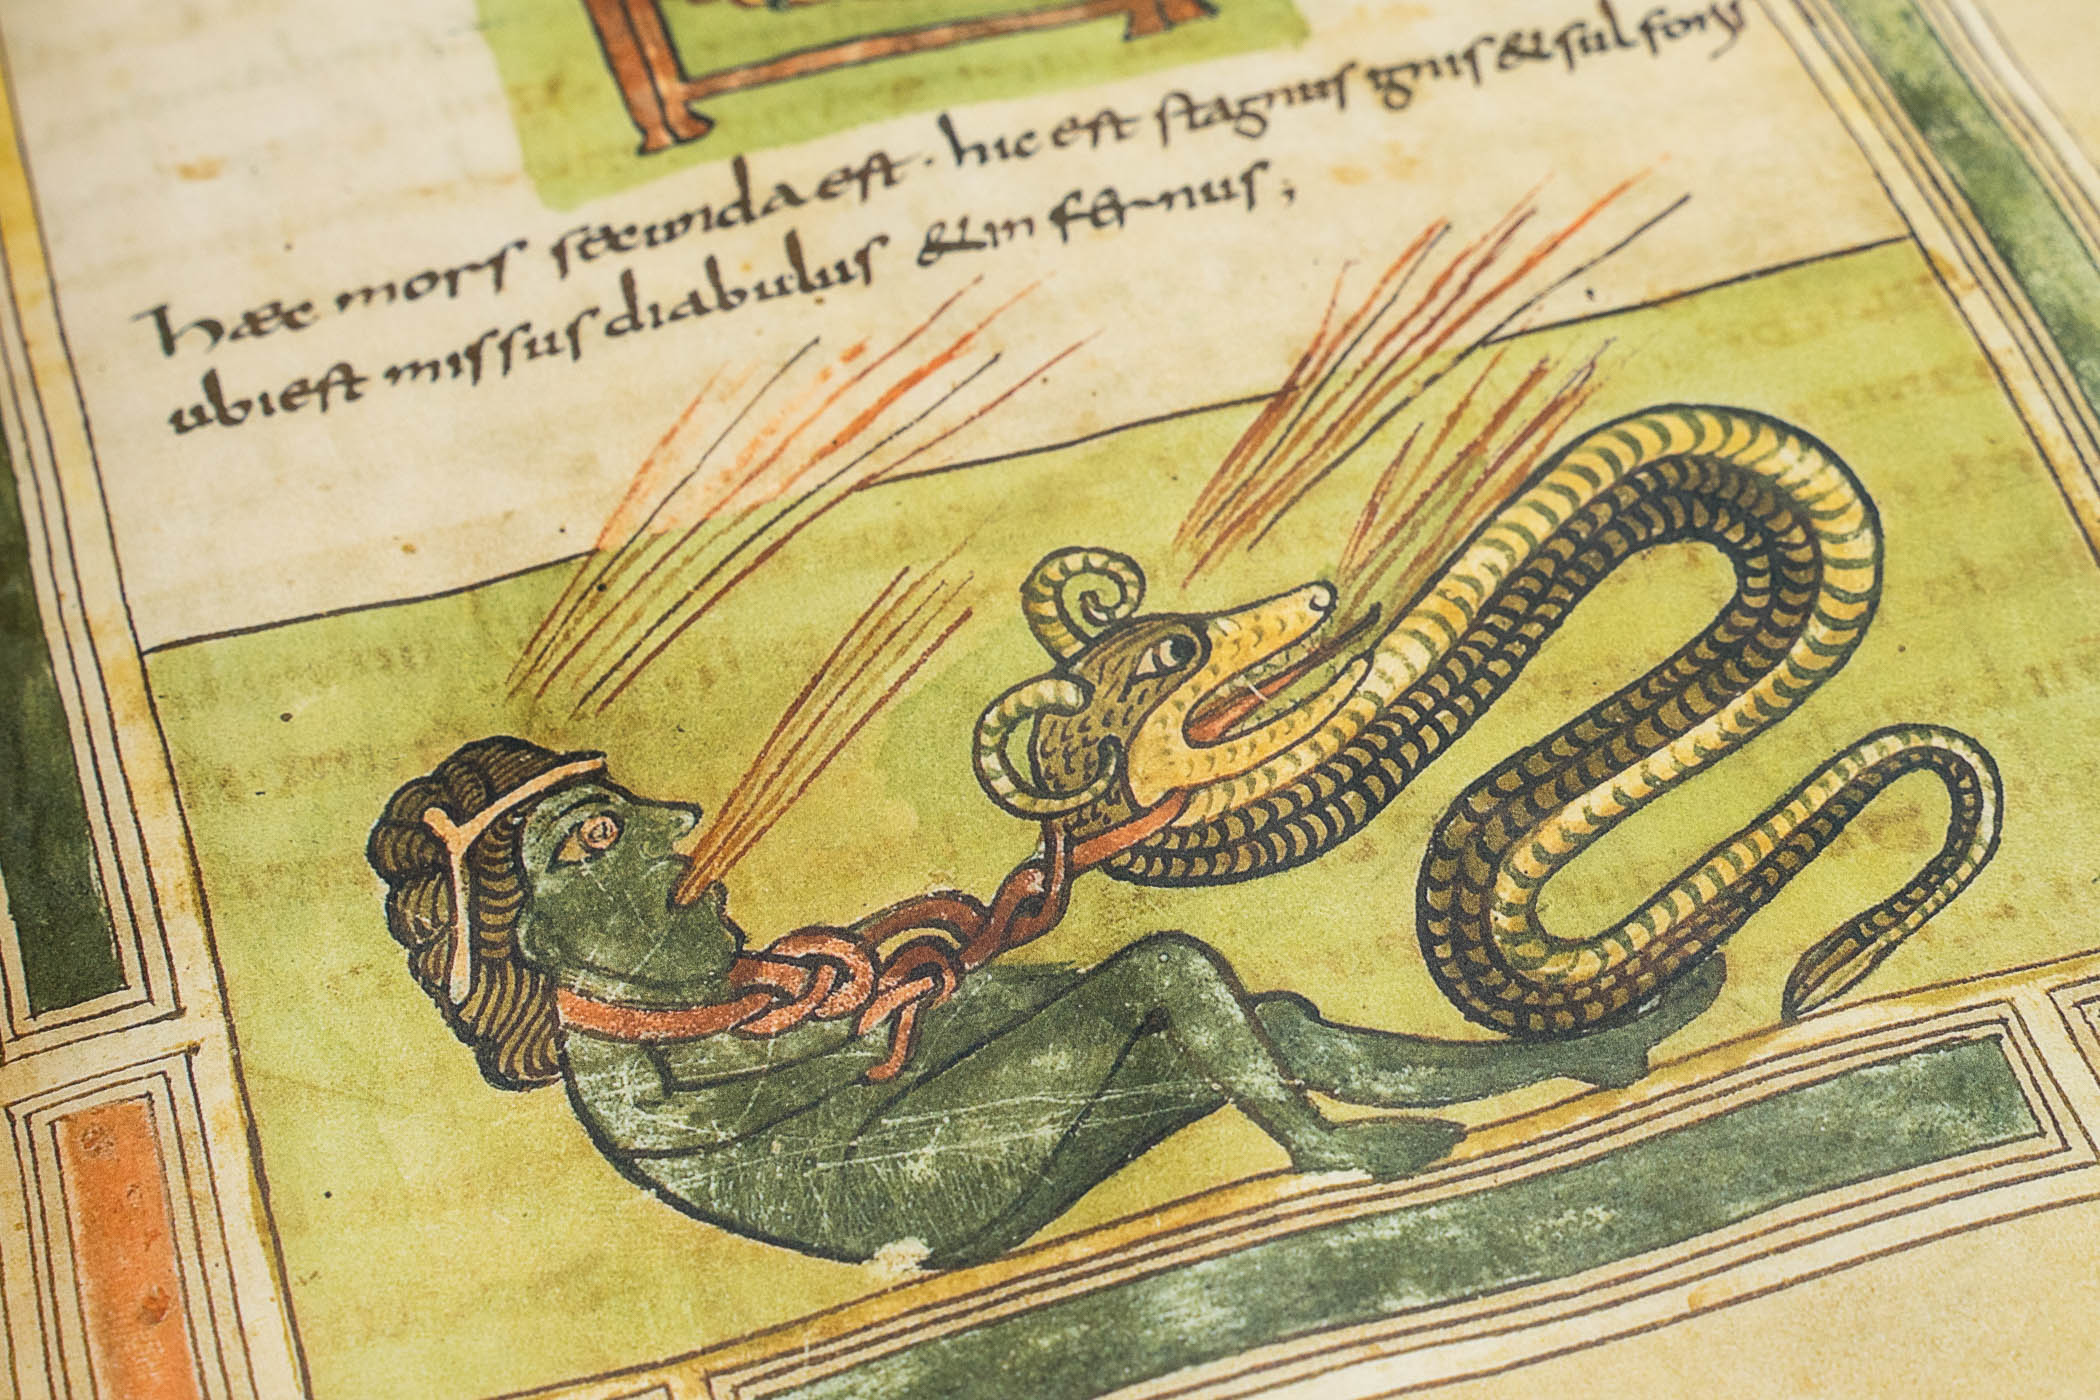 haec mors secunda est · hic est stagnus ignis & sulforis
ubi est missus diabulus & infernus;